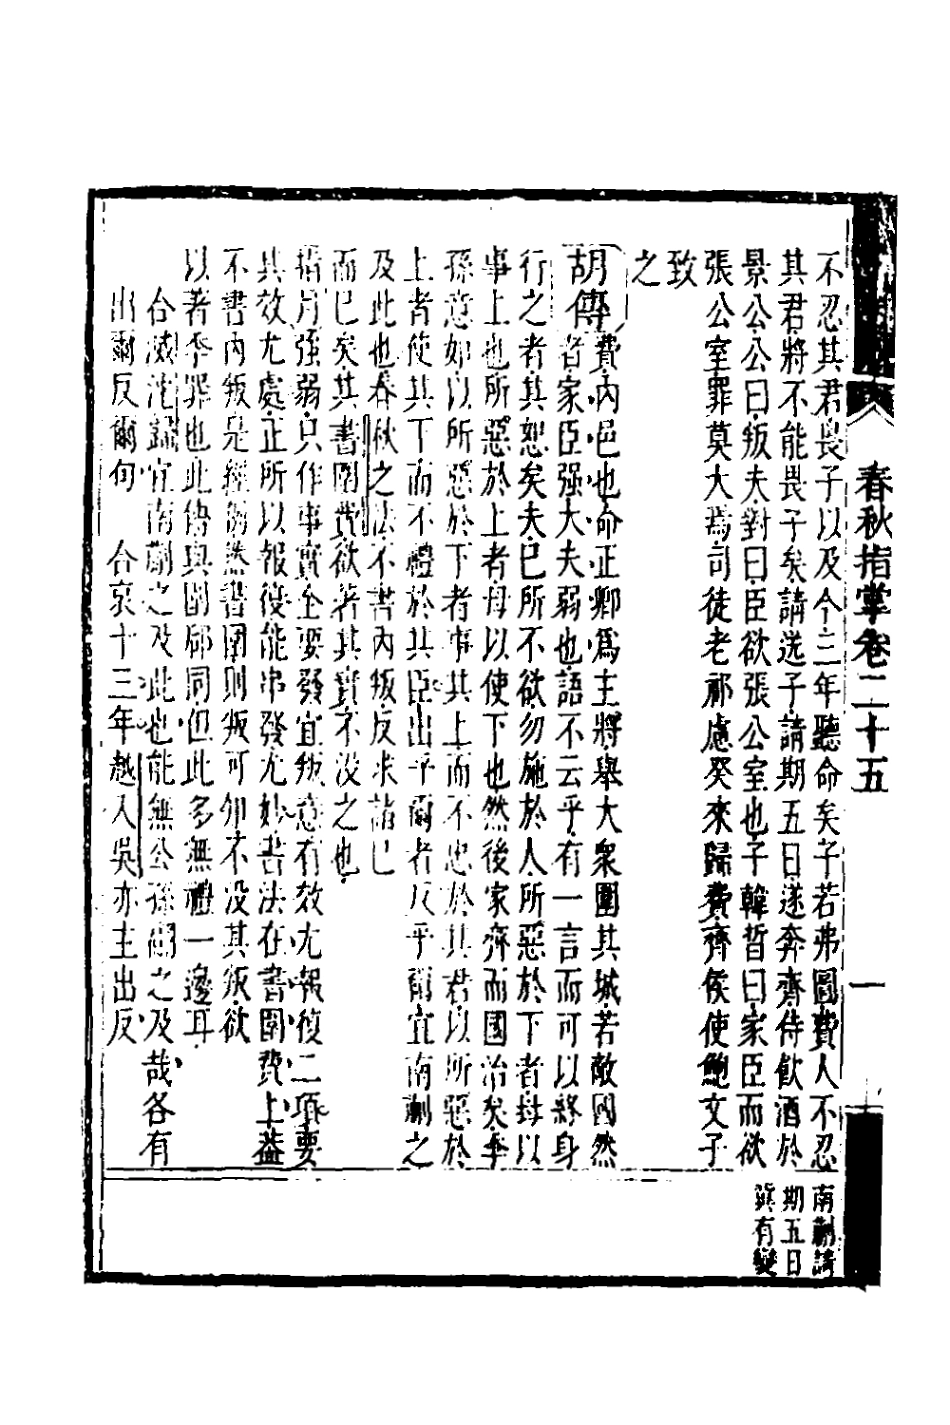 不忍其君畏子以及今三年聽命矣子若弗圖費人不忍
其君將不能畏子矣請送子請期五日遂奔齊侍飲酒於
景公公曰叛夫對曰臣欲張公室也子韓晳曰家臣而欲
張公室罪莫大焉司徒老祁慮癸來歸費齊侯使鮑文子
致
之
胡傳費內邑也命正卿爲主將舉大衆圍其城若敵國然
者家臣强大夫弱也語不云乎有一言而可以終身
行之者其恕矣夫已所不欲勿施於人所惡於下者毋以
事上也所惡於上者毋以使下也然後家齊而國治矣季
孫意如以所惡於下者事其上而不忠於其君以所惡於
上者使其下而不禮於其臣出乎爾者反乎爾宜南蒯之
及此也春秋之法不書內叛反求諸已
而已矣其書圍費欲著其實不没之也
指月强弱只作事實全要發宜叛意有效尤報復二項要
其效尤處正所以報復能串發尤妙書法在書圍費上葢
不書內叛是經例然書圍則叛可知不没其叛欲
以著季罪也此傳與圍郈同但此多無禮一邊耳
合 宜南蒯之及此也能無公孫 之及哉各有
出爾反爾句 合哀十三年越入吳亦主出反
春秋指掌卷二十五 一
南蒯請
期五日
兾有變